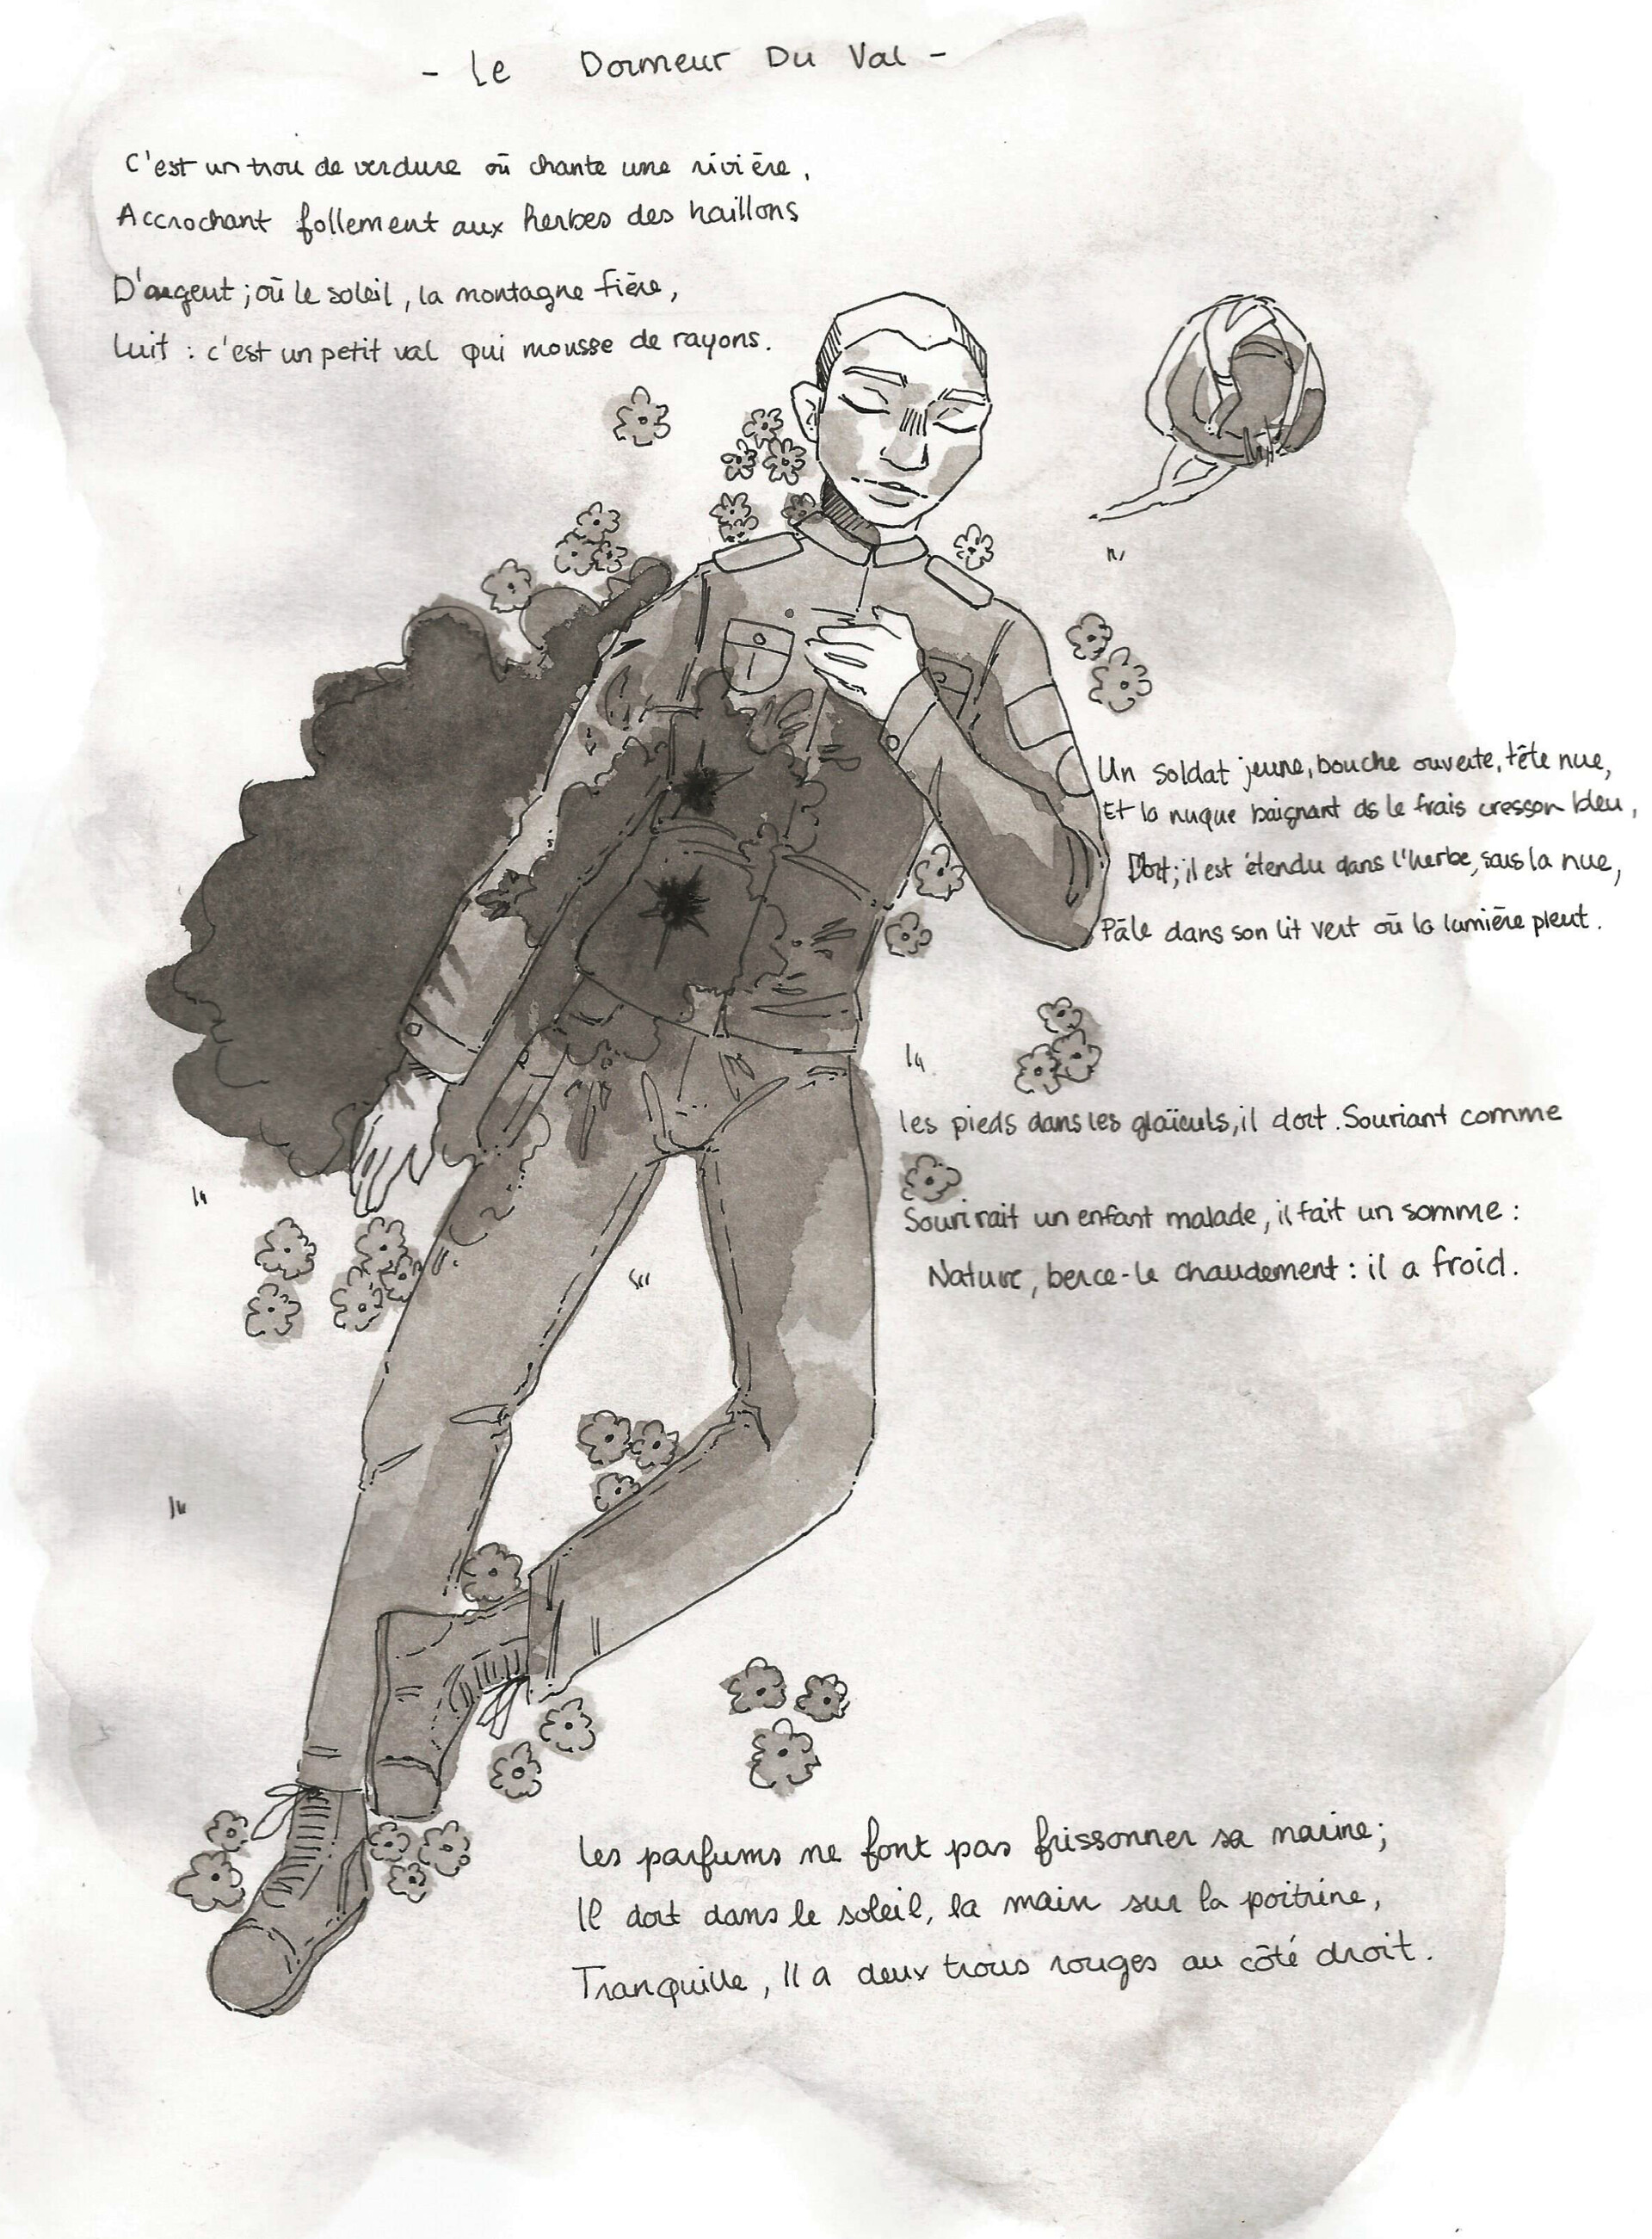 - Le Dormeur Du Val -
C'est un trou de verdure où chante une rivière,
Accrochant follement aux herbes des haillons
D'argent ; où le soleil, la montagne fière,
Luit : c'est un petit val qui mousse de rayons.
Un soldat jeune, bouche ouverte, tête nue,
Et la nuque baignant ds le frais cresson bleu,
Dort ; il est étendu dans l'herbe, sous la nue,
Pâle dans son lit vert où la lumière pleut.
les pieds dans les glaïeuls, il dort. Souriant comme
Sourirait un enfant malade, il fait un somme :
Nature, berce-le chaudement : il a froid.
Les parfums ne font pas frissonner sa narine ;
Il dort dans le soleil, la main sur la poitrine,
Tranquille, Il a deux trous rouges au côté droit.